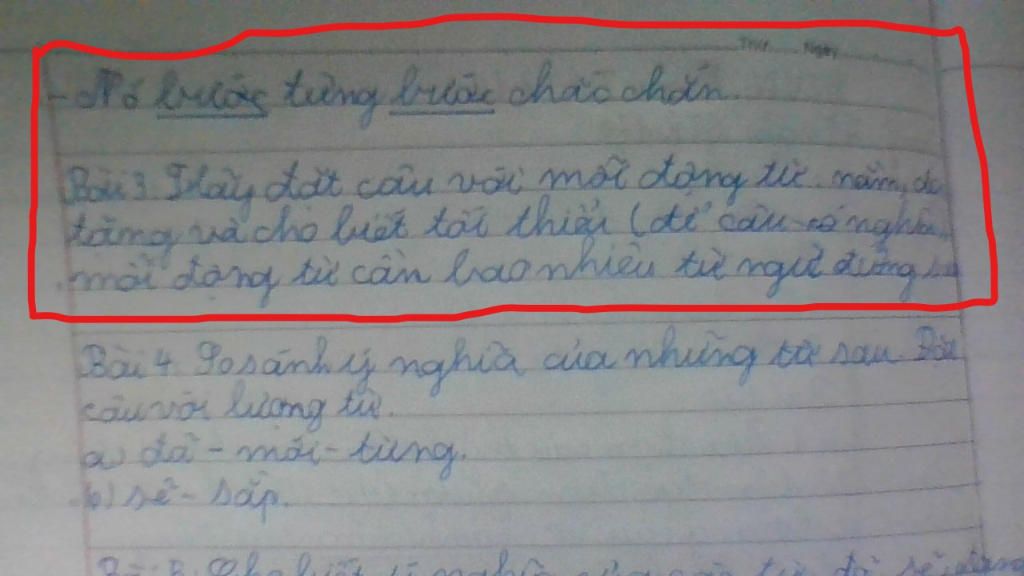 Thứ Ngày
- Nó bước từng bước chắc chắn.
Bài 3. Hãy đặt câu với mỗi động từ: nằm,
tặng và cho biết tối thiểu (để câu có nghĩa
mỗi động từ cần bao nhiêu từ ngữ đứng
Bài 4. So sánh ý nghĩa của những từ sau. Đặt
câu với lượng từ.
a) đã - mới - từng.
b) sẽ - sắp.